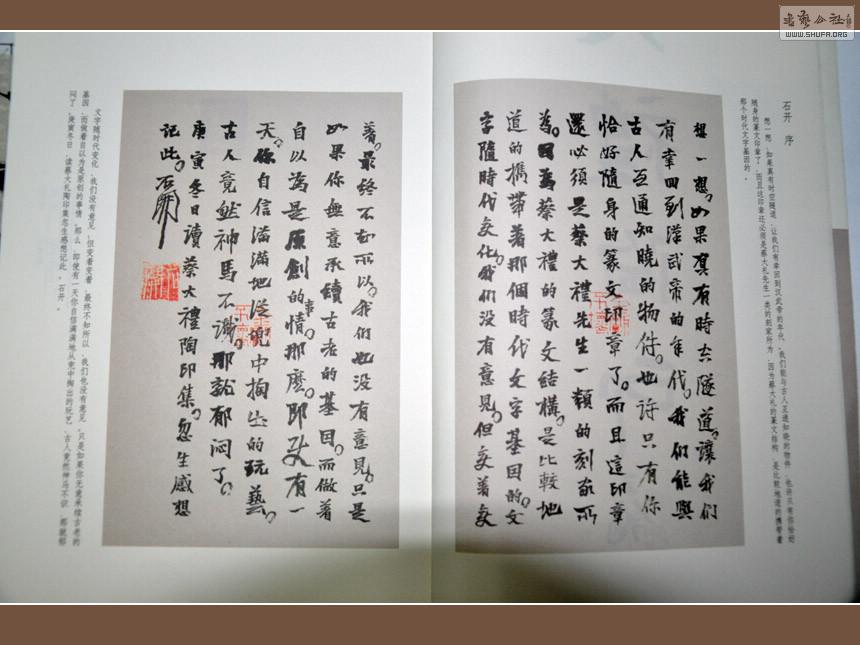 WWW.SHUFA.ORG
石开 序
想一想，如果真有时空隧道，让我们有幸回到汉武帝的年代，我们能与古人互通知晓的物件，也许只有你恰好
随身的篆文印章了，而且这印章还必须是蔡大礼先生一类的刻家所为，因为蔡大礼的篆文结构，是比较地道的携带着
那个时代文字基因的。
想一想。如果真有時空隧道。讓我們
有幸回到漢武帝的年代。我們能與
古人互通知曉的物件。也许只有你
恰好隨身的篆文印章了。而且這印章
還必须是蔡大禮先生一類的刻家所
為。因為蔡大禮的篆文结構。是比較地
道的攜帶着那個時代文字基因的。文
字隨時代变化。我们没有意見。但变着变
着。最终不知所以。我們也没有意見。只是
如果你無意承續古老的基因。而做着
自以為是原創的事情。那麽。即使有一
天。你自信滿滿地從兜中掏出的玩藝。
古人竟然神馬不識。那就郁闷了。
庚寅冬日讀蔡大禮陶印集。忽生感想
記此。石開
文字随时代变化，我们没有意见，但变着变着，最终不知所以，我们也没有意见，只是如果你无意承续古老的
基因，而做着自以为是原创的事情，那么，即使有一天你自信满满地从兜中掏出的玩艺，古人竟然神马不识，那就郁
闷了。庚寅冬日，读蔡大礼陶印集忽生感想记此，石开。